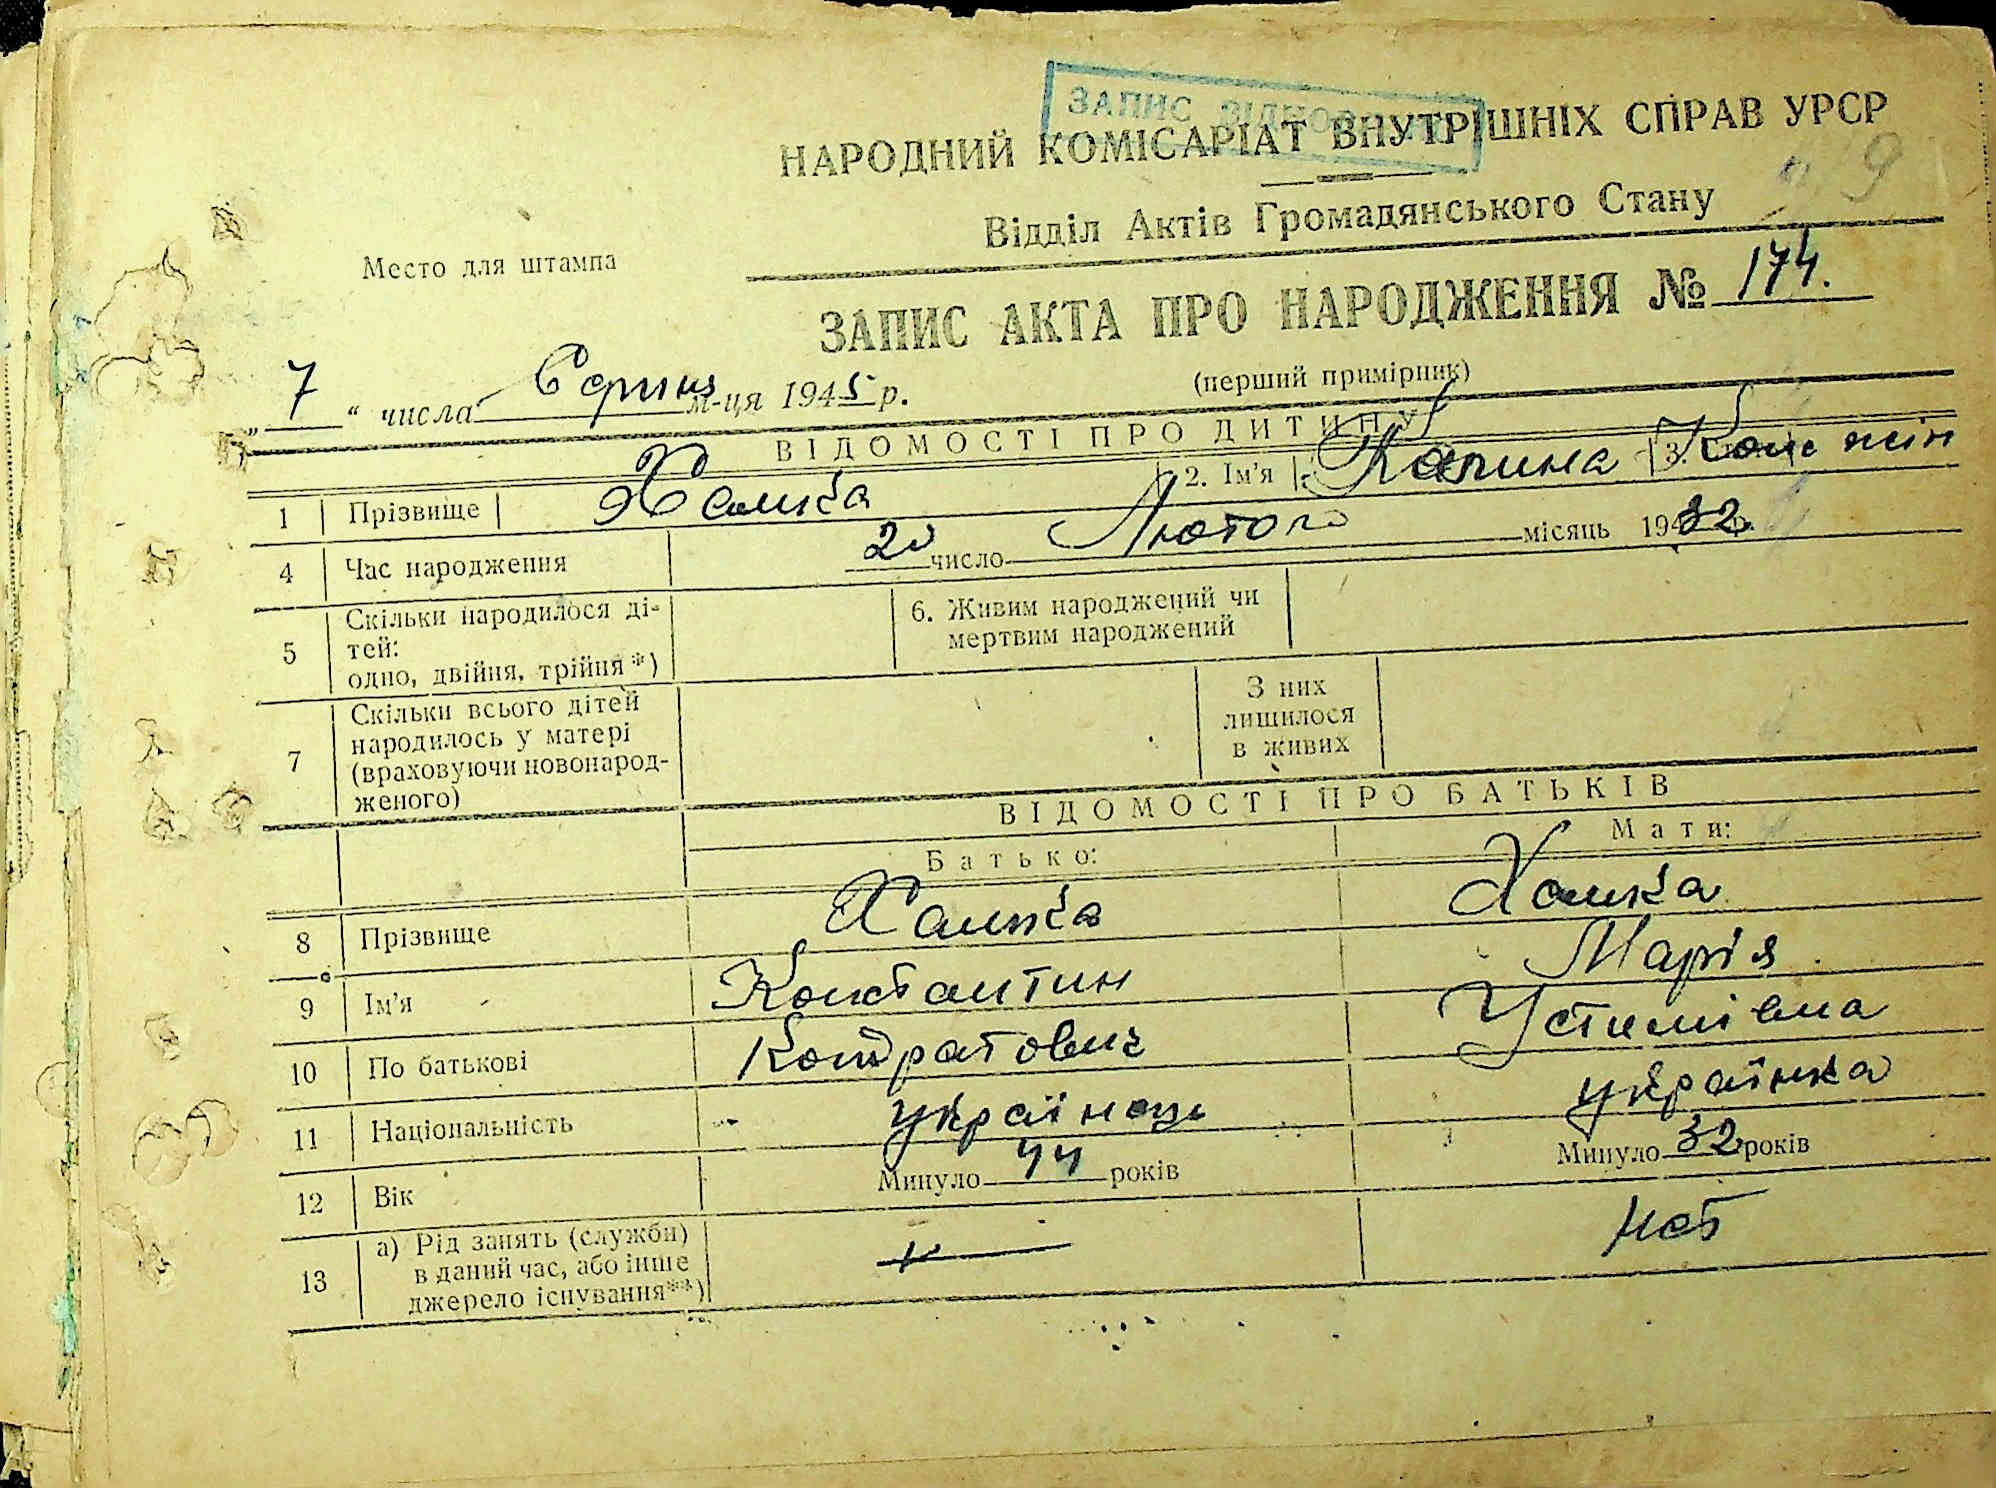 ЗАПИС ВІДНОВЛЕНО
НАРОДНИЙ КОМІСАРІАТ ВНУТРІШНІХ СПРАВ УРСР
9
Відділ Актів Громадянського Стану
Место для штампа
ЗАПИС АКТА ПРО НАРОДЖЕННЯ № 174.
(перший примірник)
„ 7 “ числа Серпня м-ця 1945 р.
ВІДОМОСТІ ПРО ДИТИНУ
1 Прізвище Хамка 2. Ім'я Калина 3. жін
4 Час народження 20 число Лютого місяць 1932 р.
5 Скільки народилося ді-
тей:
одно, двійня, трійня *)
6. Живим народжений чи
мертвим народжений
7 Скільки всього дітей
народилось у матері
(враховуючи новонарод-
женого)
З них
лишилося
в живих
ВІДОМОСТІ ПРО БАТЬКІВ
Батько: Мати:
8 Прізвище Хамка Хамка
9 Ім'я Константин Марія
10 По батькові Кондратович Устимівна
11 Національність українець українка
12 Вік Минуло 44 років Минуло 32 років
13 а) Рід занять (служби)
в даний час, або інше
джерело існування**)